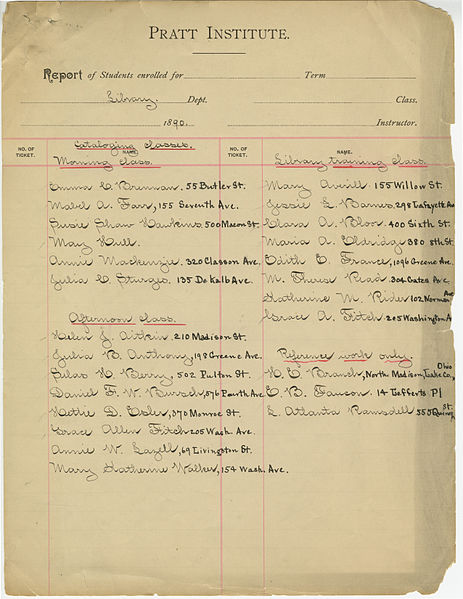 PRATT INSTITUTE.
Report of Students enrolled for Term
Library. Dept. Class.
1890. Instructor.
NO. OF TICKET.
NAME.
Cataloging classes.
Morning class.
Emma C Brennan, 55 Butler St.
Mabel A. Farr, 155 Seventh Ave.
Susie Shaw Hawkins, 500 Macon St.
Mary Hull.
Annie Mackenzie, 320 Classon Ave.
Julia C Sturges. 135 DeKalb Ave.
Afternoon class.
Helen J. Aitkin. 210 Madison St.
Julia B. Anthony, 198 Greene Ave.
Silas H. Berry, 502 Fulton St.
Daniel F. W. Bursch, 576 Fourth Ave.
Nettie D. Esler, 370 Monroe St.
Grace Allen Fitch 205 Wash. Ave.
Annie W. Lazell, 69 Livingston St.
Mary Katherine Walker, 154 Wash. Ave.
NO. OF TICKET.
NAME.
Library training class
Mary Averill 155 Willow St.
Jessie L Barnes, 298 Lafayette Ave
Clara A. Bloor. 400 Sixth St.
Maria A. Eldridge, 380 8th St.
Edith E. France, 1096 Greene Ave.
M. Therese Read. 304 Gates Ave.
Katherine M. Rider 102 Norman Ave
Grace A. Fitch. 205 Washington A
Reference work only.
H. E Branch, North Madison, Lake Co., Ohio
E. B. Fauson. 14 Lefferts Pl
L. Atlanta Ramsdell 555 Quincy St.